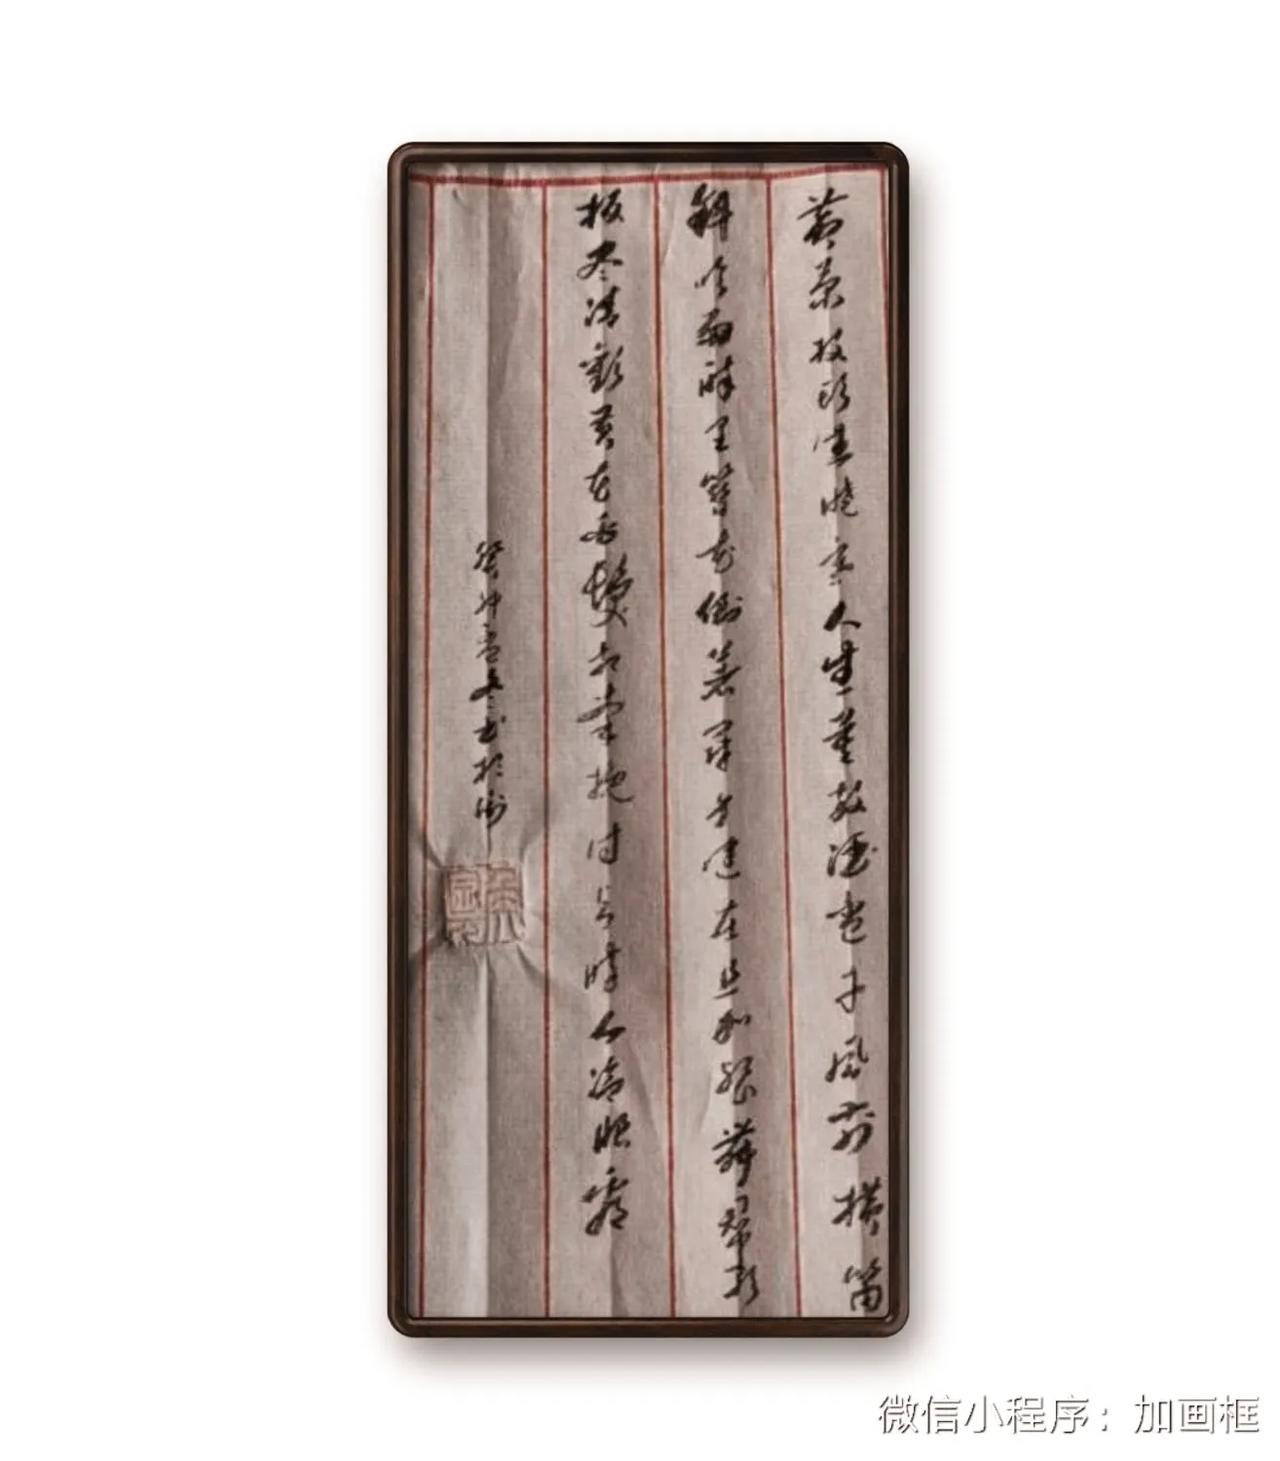 黄菊枝头生晓寒人生莫放酒盃干风前横笛
斜吹雨醉里簪花倒著冠身健在且加餐舞裙歌
板尽清歡黄花白髮相牵挽付与時人冷眼看
癸卯孟冬书於
微信小程序：加画框